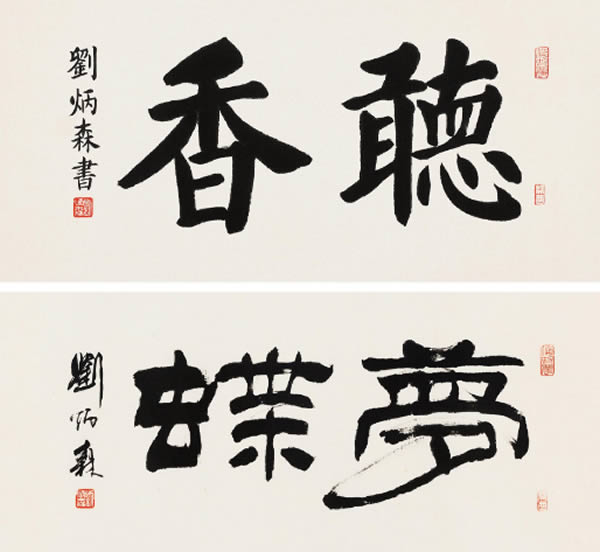 聽香
劉炳森書
夢蝶
劉炳森